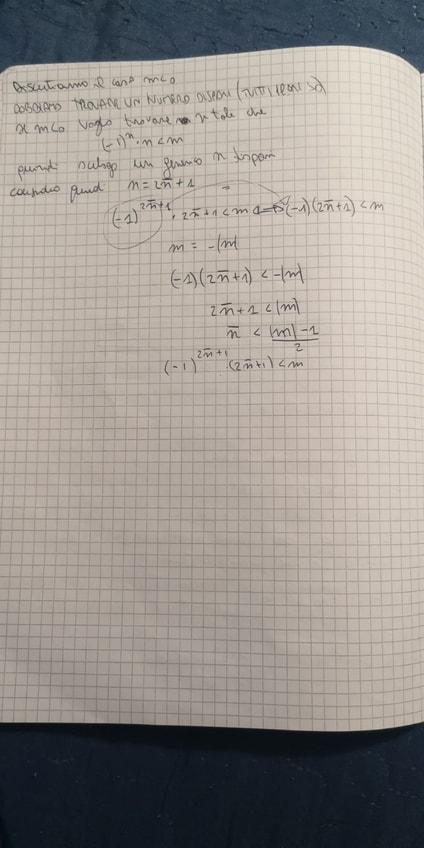 Discutiamo il caso m<0
DOBBIAMO TROVARE UN NUMERO DISPARI (TUTTI I PARI SÌ)
se m<0 voglio trovare n tale che
(-1)^n · n < m
quindi scelgo un generico n dispari
considero quindi n = 2n̅ + 1
(-1)^{2n̅+1} · 2n̅+1 < m ⟺ (-1)(2n̅+1) < m
m = -|m|
(-1)(2n̅+1) < -|m|
2n̅+1 < |m|
n̅ < \frac{|m|-1}{2}
(-1)^{2n̅+1} · (2n̅+1) < m